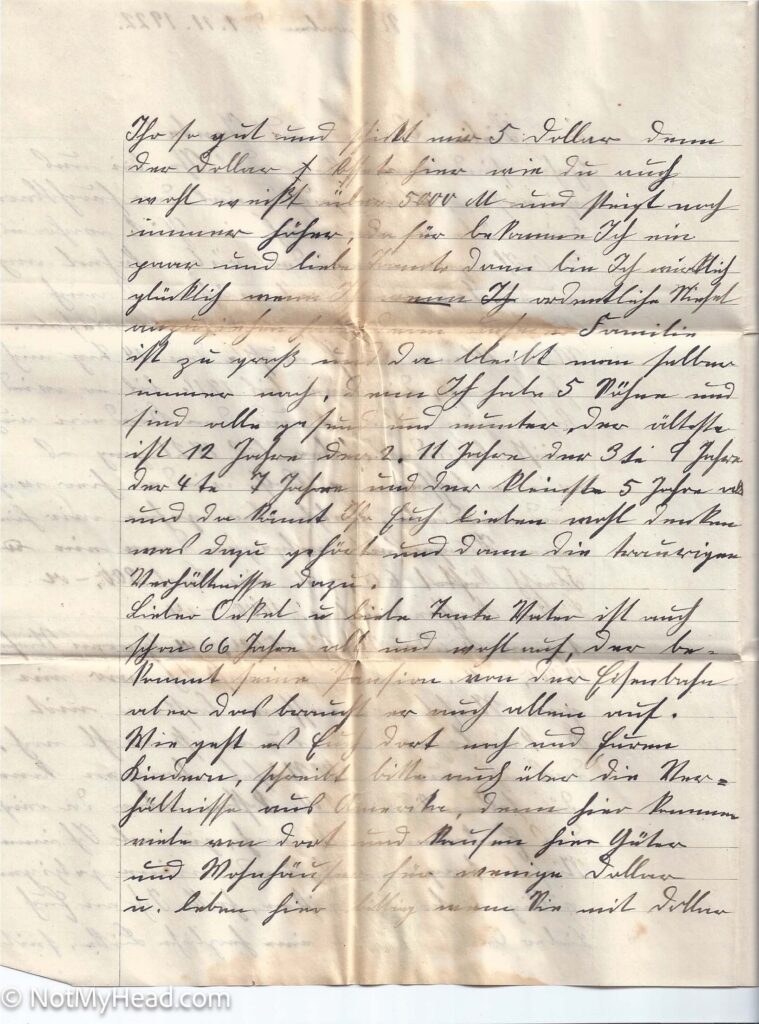 1.11.1922.
Ihr so gut und schickt mir 5 Dollar denn
der Dollar kostet hier wie du auch
wohl weißt über 5000 M und steigt noch
immer höher, dafür bekomme Ich ein
paar und liebe Tante dann bin Ich wirklich
glücklich wenn Ich wenn Ich ordentliche Stiefel
anzuziehen Familie
ist zu groß und da bleibt man selber
immer nach, denn Ich habe 5 Söhne und
sind alle gesund und munter, der älteste
ist 12 Jahre der 2. 11 Jahre der 3te 9 Jahre
der 4te 7 Jahre und der kleinste 5 Jahre alt
und da könnt Ihr Euch lieben wohl denken
was dazu gehört und dann die traurigen
Verhältnisse dazu.
Lieber Onkel u liebe Tante Vater ist auch
schon 66 Jahre alt und wohl auf, der be-
kommt seine Pansion von der Eisenbahn
aber das braucht er auch allein auf.
Wie geht es Euch dort noch und Euren
Kindern, schreibt bitte auch über die Ver=
hältnisse aus Amerika, denn hier kommen
viele von dort und kaufen hier Güter
und Wohnhäuser für wenige Dollar
u. leben hier billig wenn Sie mit Dollar
© NotMyHead.com